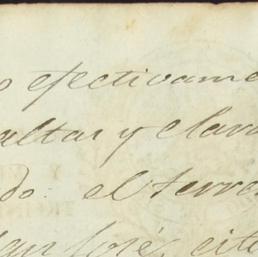 o efectivame
altas y clara
do: el terre
San José, cite